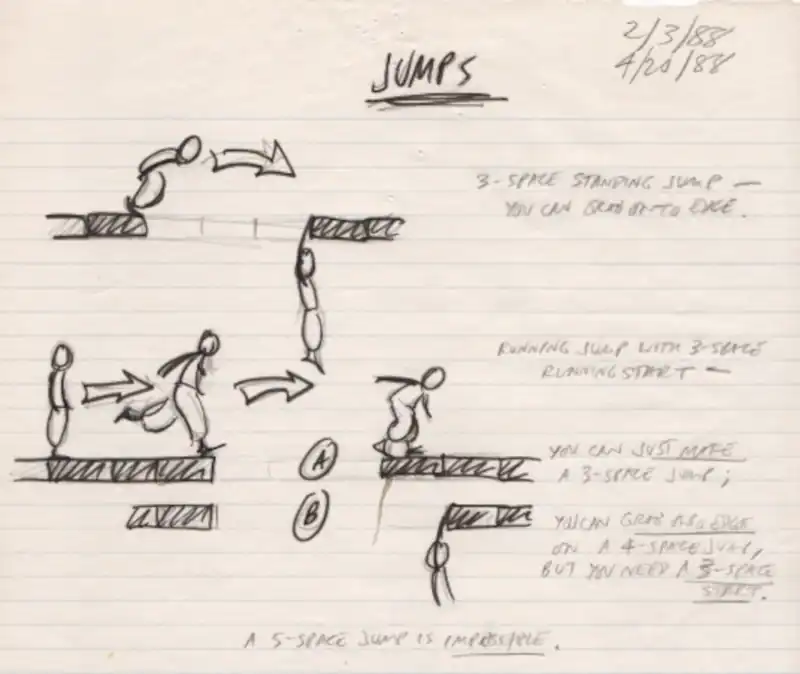 2/3/88
4/20/88
JUMPS
3-SPACE STANDING JUMP —
YOU CAN GRAB ONTO EDGE.
RUNNING JUMP WITH 3-SPACE
RUNNING START —
A
YOU CAN JUST MAKE
A 3-SPACE JUMP;
B
YOU CAN GRAB EDGE
ON A 4-SPACE JUMP,
BUT YOU NEED A 3-SPACE
START.
A 5-SPACE JUMP IS IMPOSSIBLE.